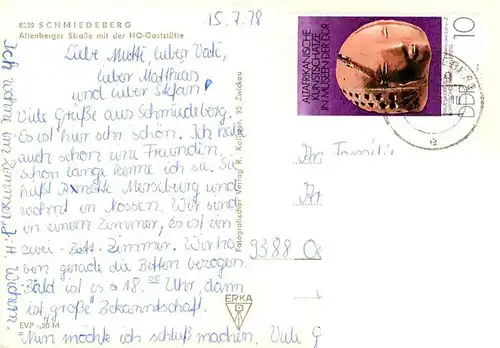 8239 SCHMIEDEBERG
Altenberger Straße mit der HO-Gaststätte
15.7.78
Liebe Mutti, lieber Vati,
lieber Matthias
und lieber Stefan!
Viele Grüße aus Schmiedeberg.
Es ist hier sehr schön. Ich habe
auch schon eine Freundin,
schon lange kenne ich sie. Sie
heißt Annette Merseburg und
wohnt in Nossen. Wir sind
in einem Zimmer, Es ist ein
zwei-Bett-Zimmer. Wir ha-
ben gerade die Betten bezogen.
Bald ist es 18.00 Uhr, dann
ist "große" Bekanntschaft.
Nun möchte ich schluß machen. Viele G
Ich wohne im Zimmer
EVP -,20 M
ERKA
Fotografischer Verlag R. Kallmer, 95 Zwickau
ALTAFRIKANISCHE
KUNSTSCHÄTZE
IN MUSEEN DER DDR
10
DDR
An Familie
9388 O